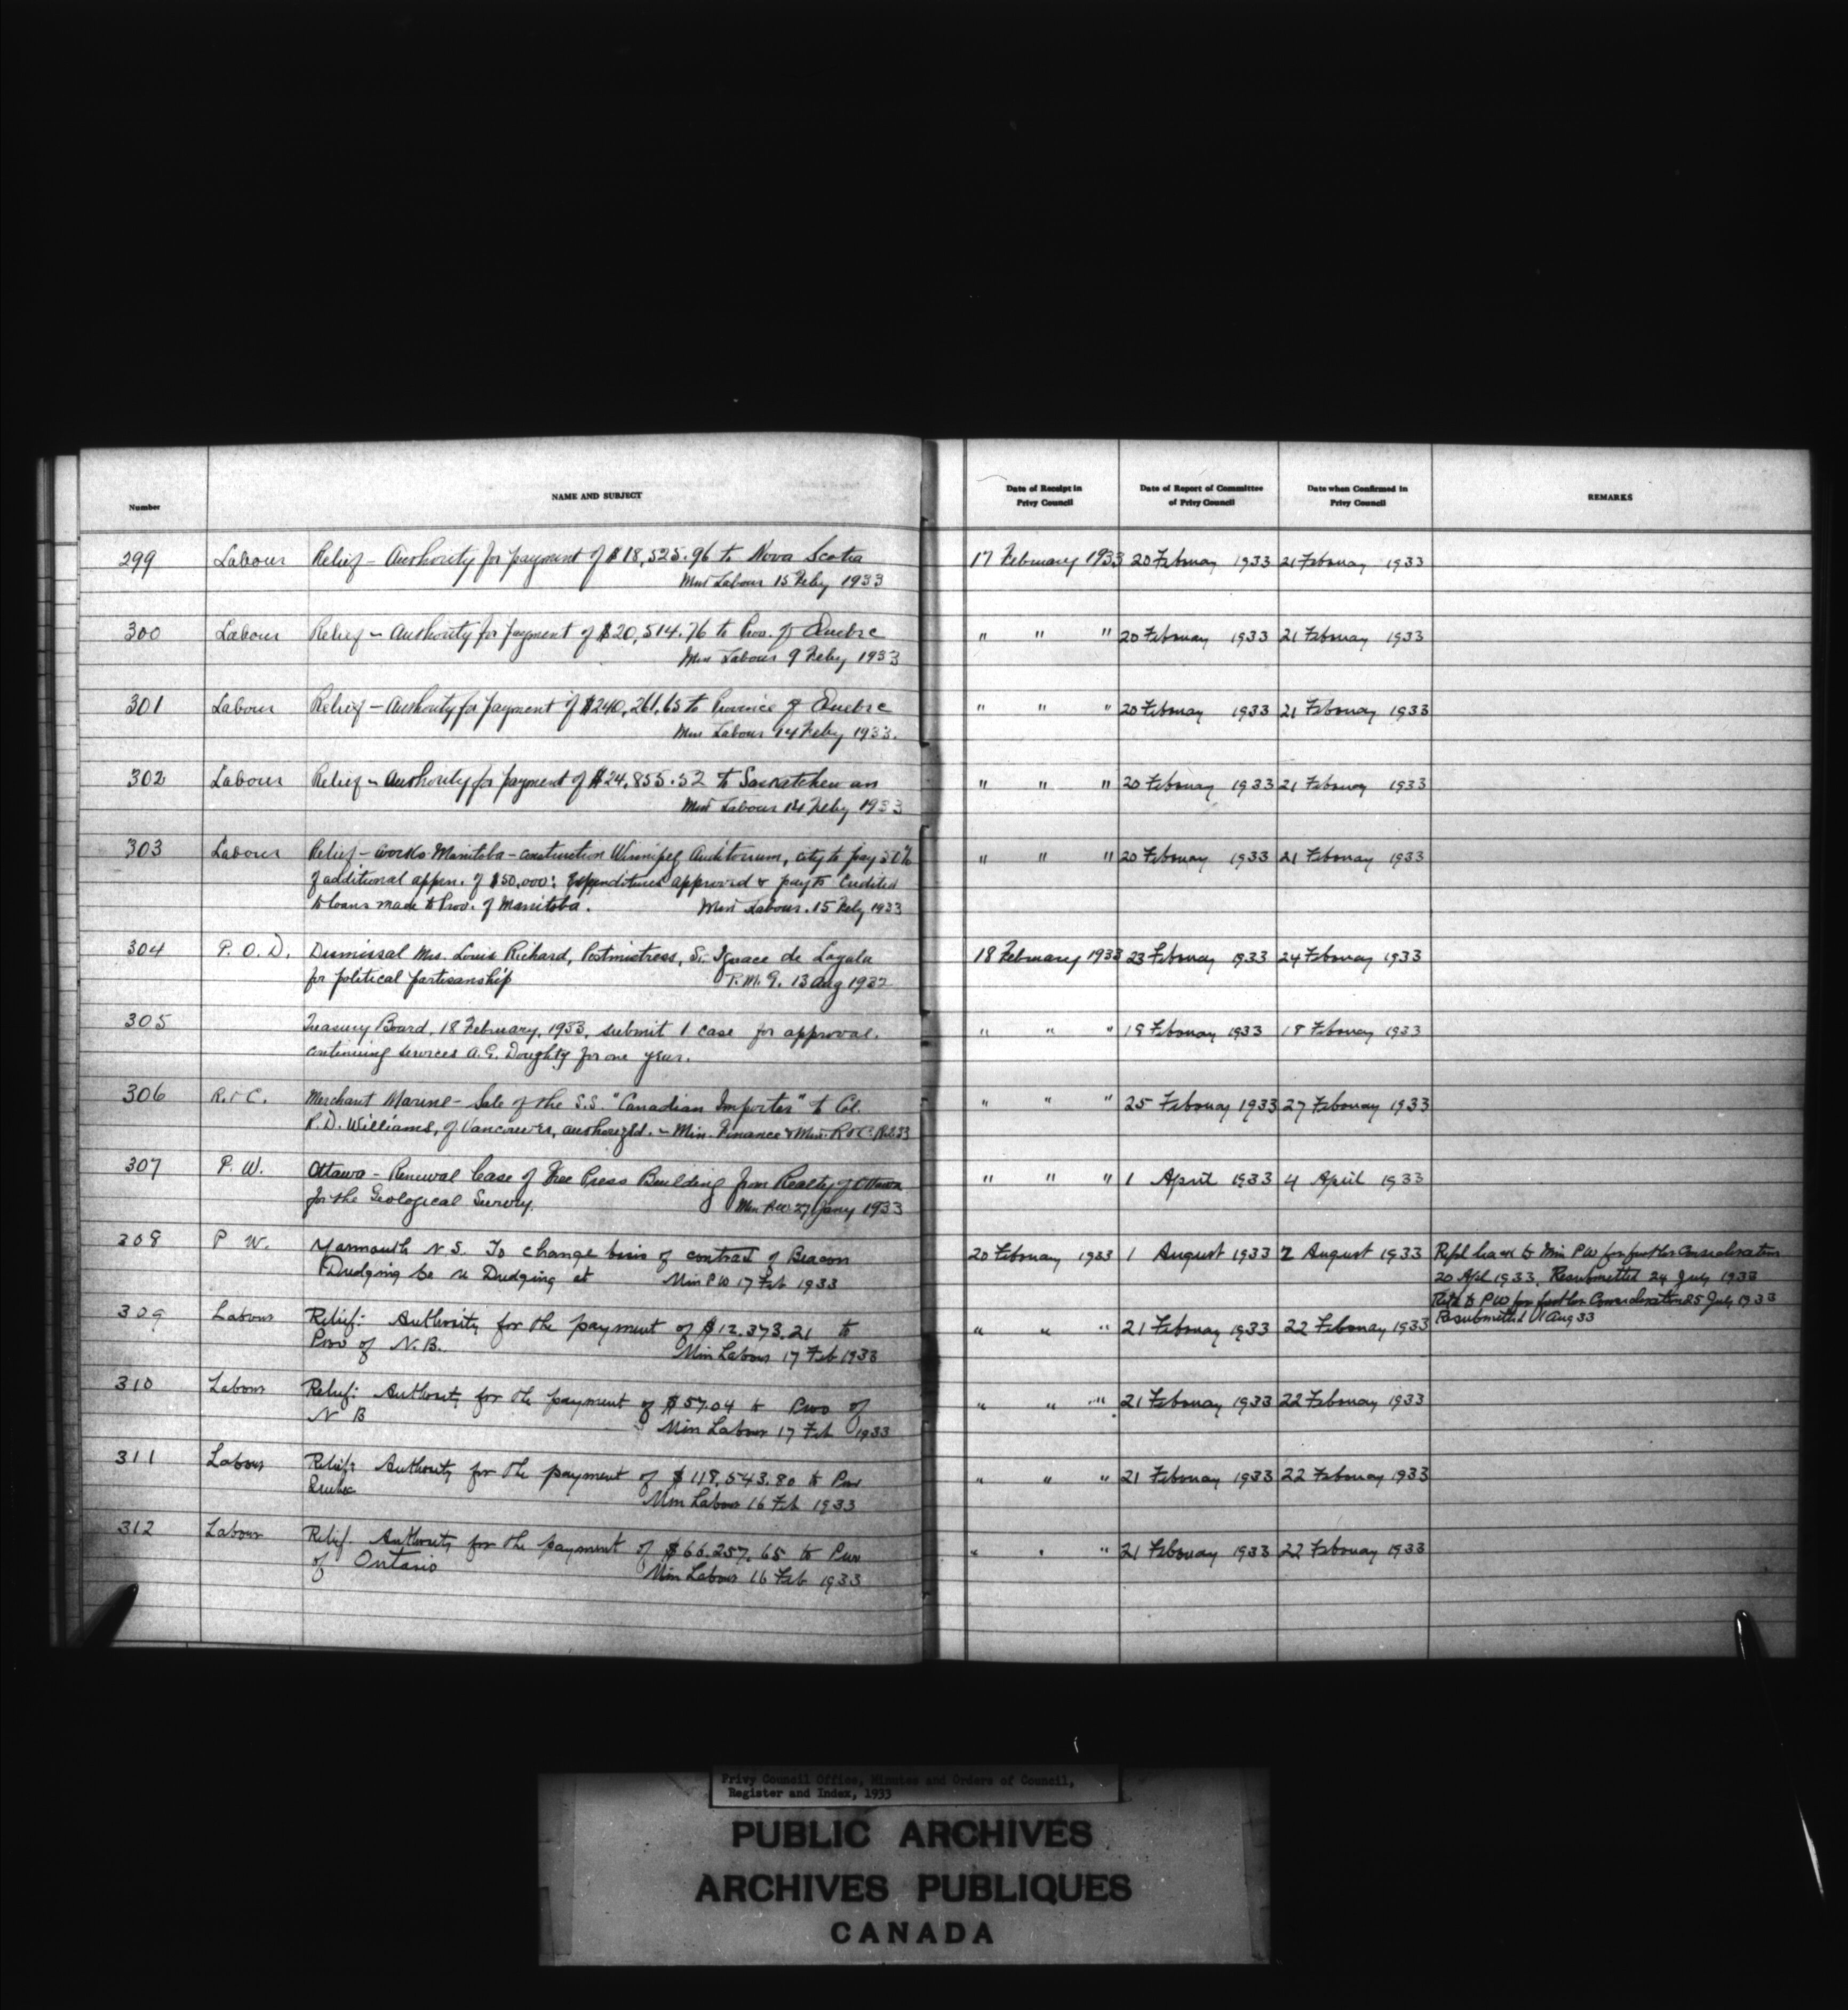 Number
NAME AND SUBJECT
Date of Receipt in Privy Council
Date of Report of Committee of Privy Council
Date when Confirmed in Privy Council
REMARKS
299 Labour Relief - Authority for payment of $18,525.96 to Nova Scotia 17 February 1933 20 February 1933 21 February 1933
Min Labour 15 Feby 1933
300 Labour Relief - Authority for payment of $20,514.76 to Prov. of Quebec " " " 20 February 1933 21 February 1933
Min Labour 9 Feby 1933
301 Labour Relief - Authority for payment of $240,261.65 to Province of Quebec " " " 20 February 1933 21 February 1933
Min Labour 14 Feby 1933.
302 Labour Relief - Authority for payment of $24,855.52 to Saskatchewan " " " 20 February 1933 21 February 1933
Min Labour 14 Feby 1933
303 Labour Relief - works Manitoba - construction Winnipeg Auditorium, city to pay 50% " " " 20 February 1933 21 February 1933
of additional appn. of $50,000: Expenditures approved & payts credited
to loans made to Prov. of Manitoba. Min Labour. 15 Feby 1933
304 P. O. D. Dismissal Mrs. Louis Richard, Postmistress, St. Ignace de Loyola 18 February 1933 23 February 1933 24 February 1933
for political partisanship P.M.G. 13 Aug 1932
305 Treasury Board, 18 February, 1933, submit 1 case for approval. " " " 18 February 1933 18 February 1933
continuing services A.G. Doughty for one year.
306 R. & C. Merchant Marine - Sale of the S.S. "Canadian Importer" to Col. " " " 25 February 1933 27 February 1933
R.D. Williams, of Vancouver, authorized. - Min. Finance & Min. R & C.
307 P. W. Ottawa - Renewal lease of Free Press Building from Realty of Ottawa " " " 1 April 1933 4 April 1933
for the Geological Survey. Min P.W. 27 Jany 1933
308 P W. Yarmouth N.S. To change basis of contract of Beacon 20 February 1933 1 August 1933 2 August 1933 back to Min PW for further consideration
Dredging Dredging at Min PW 17 Feb 1933 20 Apl 1933. Resubmitted 24 July 1933
to PW for further Consideration 25 July 1933
Resubmitted 1 Aug 33
309 Labour Relief: Authority for the payment of $12,373.21 to " " " 21 February 1933 22 February 1933
Prov of N.B. Min Labour 17 Feb 1933
310 Labour Relief: Authority for the payment of $57.04 to Prov of " " " 21 February 1933 22 February 1933
N B Min Labour 17 Feb 1933
311 Labour Relief: Authority for the payment of $118,543.80 to Prov " " " 21 February 1933 22 February 1933
Quebec Min Labour 16 Feb 1933
312 Labour Relief. Authority for the payment of $66,257.65 to Prov " " " 21 February 1933 22 February 1933
of Ontario Min Labour 16 Feb 1933
Privy Council Office, Minutes and Orders of Council,
Register and Index, 1933
PUBLIC ARCHIVES
ARCHIVES PUBLIQUES
CANADA